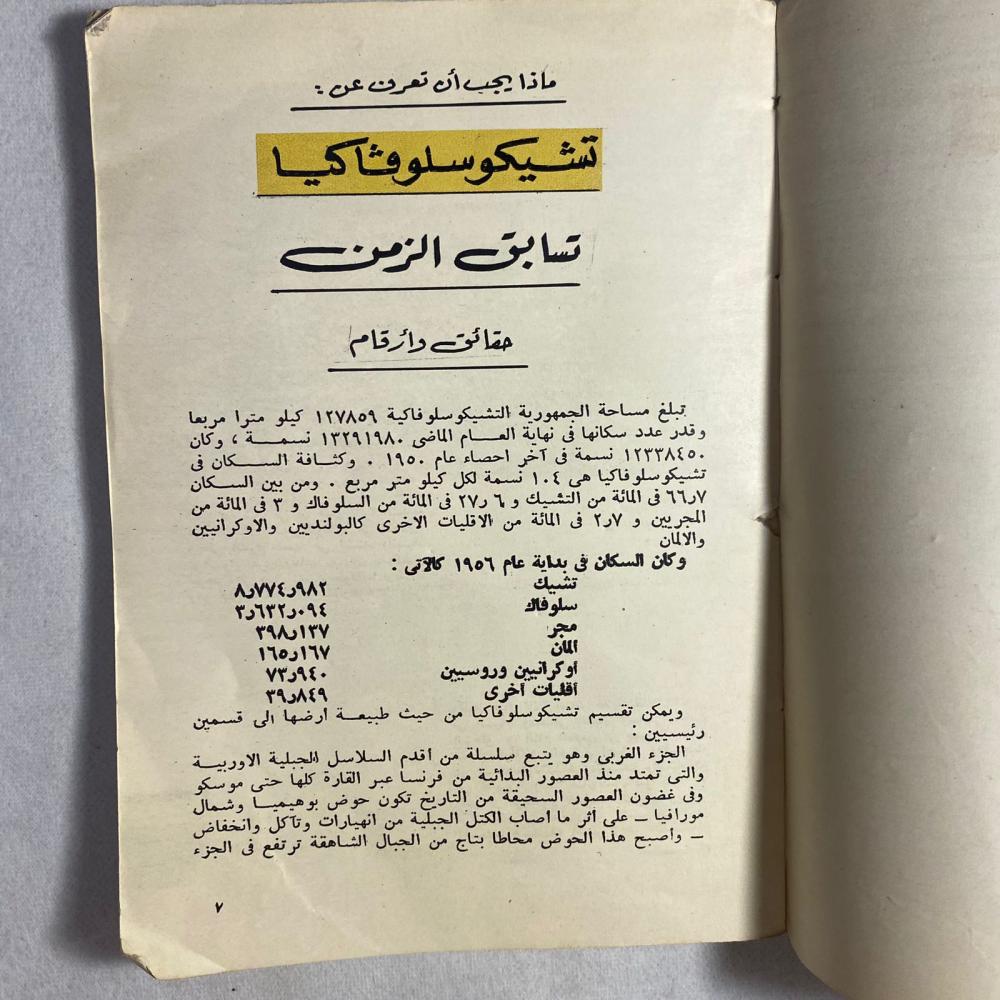 ماذا يجب أن تعرف عن :
تشيكوسلوڤاكيا
تسابق الزمن
حقائق وأرقام
تبلغ مساحة الجمهورية التشيكوسلوفاكية ١٢٧٨٥٩ كيلو مترا مربعا
وقدر عدد سكانها فى نهاية العـــام الماضى ١٣٢٩١٩٨٠ نسمـــة ، وكان
١٢٣٣٨٤٥٠ نسمة فى آخر احصاء عام ١٩٥٠ . وكثافة الســـكان فى
تشيكوسلوفاكيا هى ١٠٤ نسمة لكل كيلو متر مربع . ومن بين السكان
٦٦٫٧ فى المائة من التشيك و ٢٧٫٦ فى المائة من السلوفاك و ٣ فى المائة من
المجريين و ٢٫٧ فى المائة من الاقليات الاخرى كالبولنديين والاوكرانيين
والالمان
وكان السكان فى بداية عام ١٩٥٦ كالآتى :
تشيك ٨ر٧٧٤ر٩٨٢
سلوفاك ٣ر٦٣٢ر٠٩٤
مجر ٣٩٨ر١٣٧
المان ١٦٥ر١٦٧
أوكرانيين وروسيين ٧٣ر٩٤٠
أقليات أخرى ٣٩ر٨٤٩
ويمكن تقسيم تشيكوسلوفاكيا من حيث طبيعـــة أرضها الى قسمين
رئيسيين :
الجزء الغربى وهو يتبع سلسلة من أقدم السلاسل الجبلية الاوربيـــة
والتى تمتد منذ العصور البدائية من فرنسا عبر القارة كلها حتى موسكو
وفى غضون العصور السحيقة من التاريخ تكون حوض بوهيميـــا وشمال
مورافيا ــ على اثر ما أصاب الكتل الجبلية من انهيارات وتآكل وانخفاض
ــ وأصبح هذا الحوض محاطا بتاج من الجبال الشاهقة ترتفع فى الجزء
٧